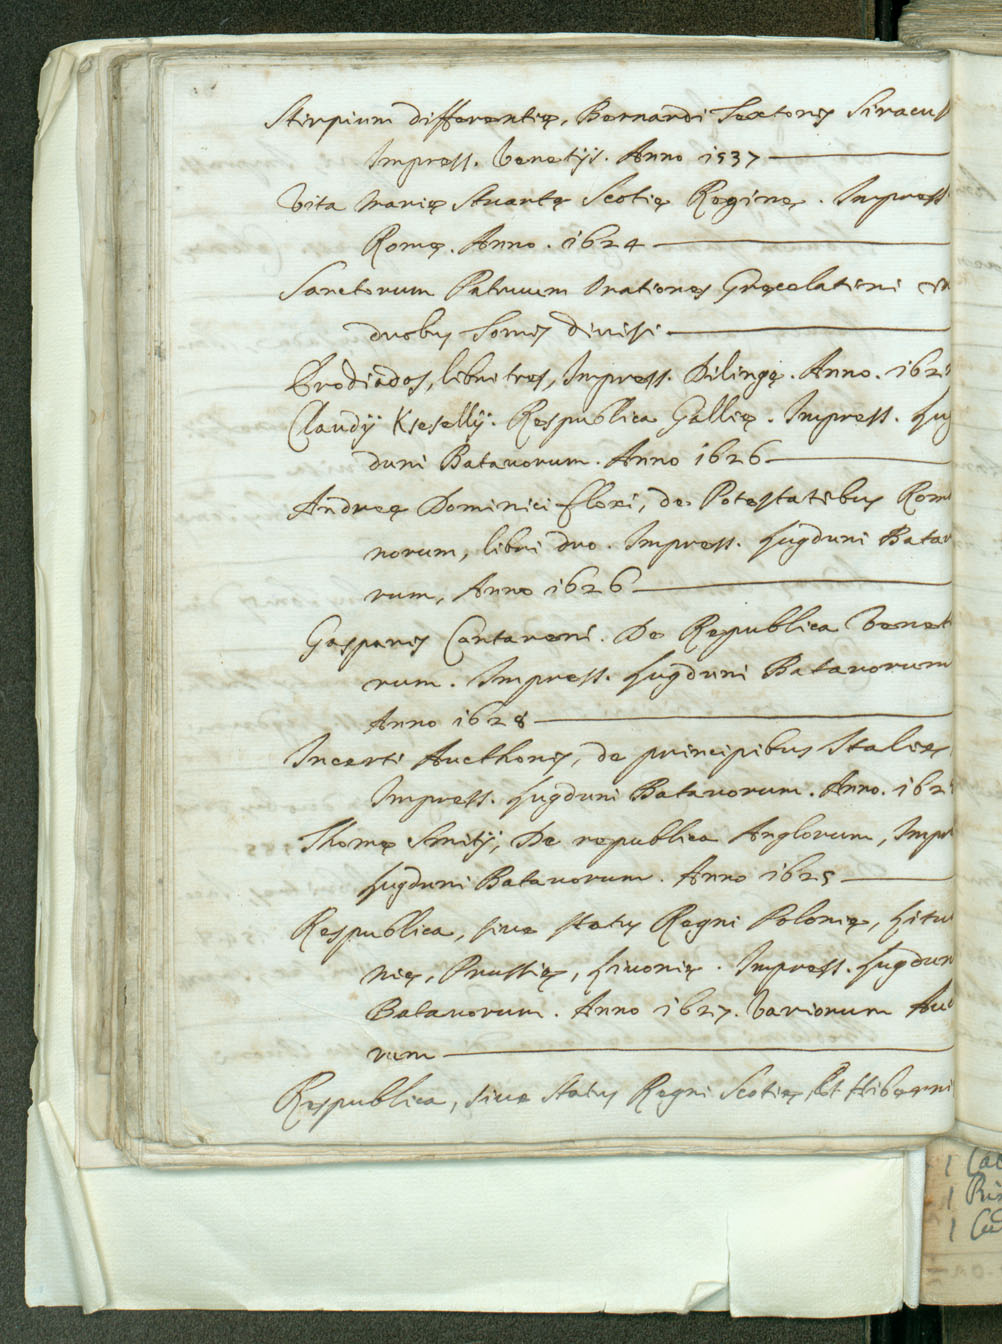 Stirpium differentię, Bernardi Sextorij Siracus
Impress. Venetijs. Anno 1537
Vita Marię Stuartę Scotię Reginę. Impress
Romę. Anno. 1624
Sanctorum Patruum Orationes Gręcolatini in
duobus Tomis divisi
libri tres, Impress. Dilingę. Anno. 162
Claudij Kseselly. Respublica Gallię. Impress. Lug
duni Batauorum. Anno 1626
Andreę Dominici Flori, de Potestatibus Rom
norum, libri duo. Impress. Lugduni Batau
rum, Anno 1626
Gasparis Cantareni. De Republica Venet
rum. Impress. Lugduni Batauorum
Anno 1628
Incerti Aucthoris, de principibus Italię,
Impress. Lugduni Batauorum. Anno. 162
Thomę Smitij, De republica Anglorum, Impr
Lugduni Batauorum. Anno 1625
Respublica, siue status Regni Polonię, Litu
nię, Prussię, Liuonię. Impress. Lugdun
Batauorum. Anno 1627. Variorum Auc
rum
Respublica, siue Status Regni Scotię, Et Hiberni